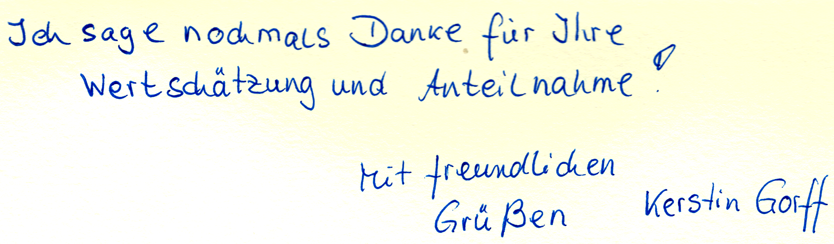 Ich sage nochmals Danke für Ihre
Wertschätzung und Anteilnahme!
Mit freundlichen
Grüßen Kerstin Gorff